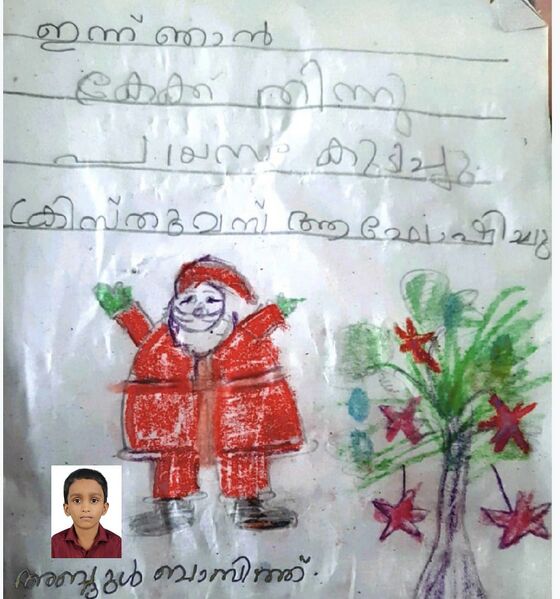 ഇന്ന് ഞാൻ
കേക്ക് തിന്നു
പായസം കുടിച്ചു.
ക്രിസ്തുമസ് ആഘോഷിച്ചു
അബ്ദുൾ ബാസിത്ത്.